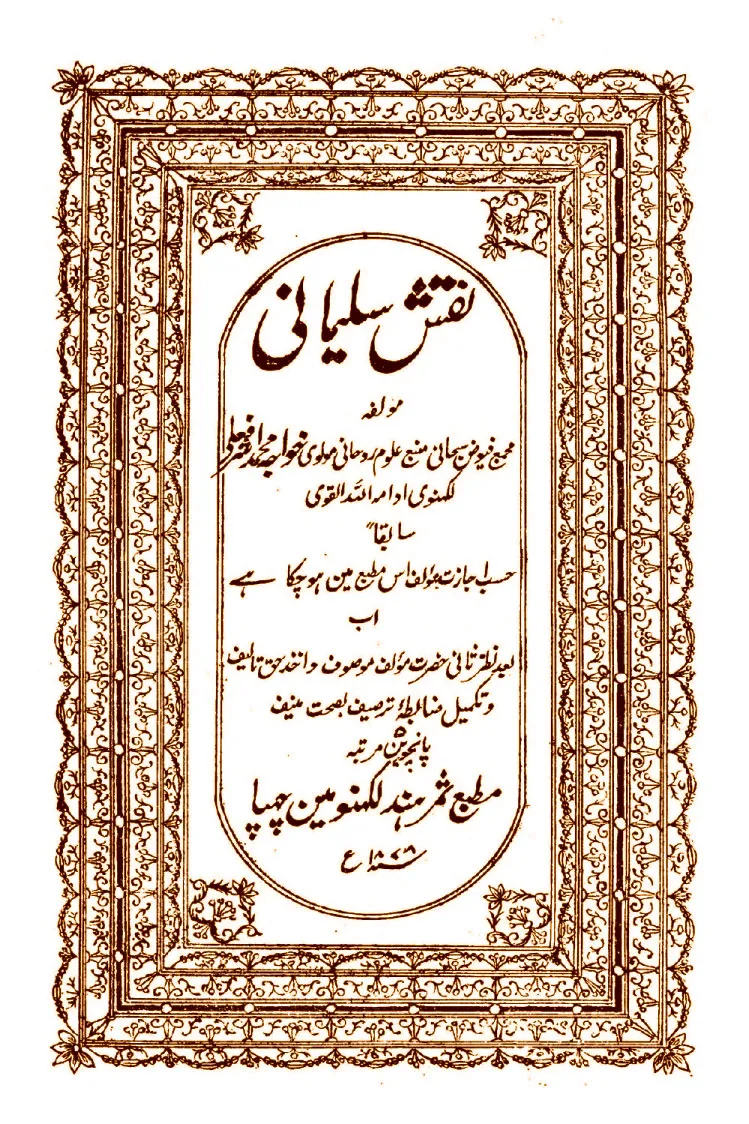 نقش سلیمانی
مولفہ
مجمع فیوض سبحانی منبع علوم روحانی مولوی خواجہ محمد اشرف علی
لکہنوی ادامہ اللہ القوی
سابقاً
حسب اجازت مؤلف اس مطبع مین ہو چکا ہے
اب
بعد نظر ثانی حضرت مؤلف موصوف و اخذ حق تالیف
و تکمیل ضابطۂ ترصیف بصحت منیف
پانچوین مرتبہ
مطبع ثمر ہند لکہنو مین چھپا